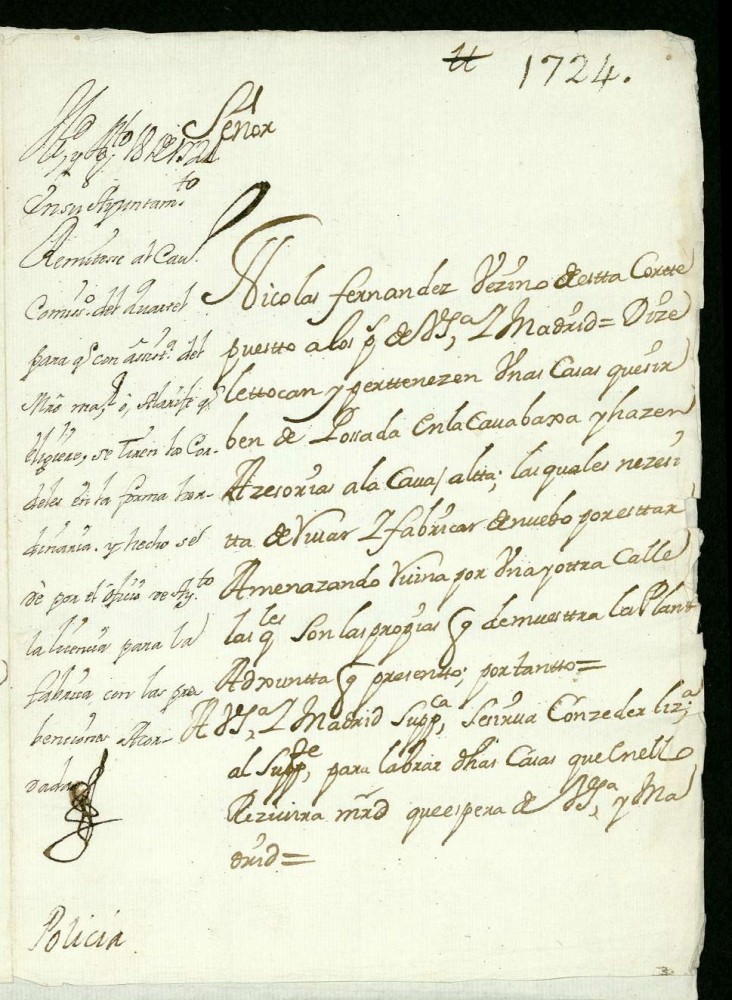 tt 1724.
Señor
M.d y Ag.to 18 de 1724
En su Ayuntam.to
Remitese al Cau.
Comiss.o del quartel
para q.e con assist.a del
Mro mas.r ó, Alarife q.e
eligiere, se tiren los Cor-
deles en la forma hor-
dinaria. y hecho se le
dè por el oficio de Ay.to
la licencia para la
fabrica con las pre
benciones Acor-
dadas
Nicolas fernandez Vezino de estta Cortte
puestto a los p. de V.S.a I Madrid = Dize
le ttocan y perttenezen Vnas Casas que sir
ben de Possada en la Caua baxa y hazen
Azesorias a la Caua altta; las quales nezesi
tta de Vuiar I fabricar de nuebo por esttar
Amenazando Ruina por Vna y ottra Calle
las q.les son las propias q demuesttra la Plant
Adxuntta q presentto; por tantto =
A V.S.a I Madrid Supp.ca, Se sirua Conzeder liz.a
al Supp.te, para labrar dhas Casas que en ello
Reziuira mrd que espera de V.S.a y Ma
drid =
Policia